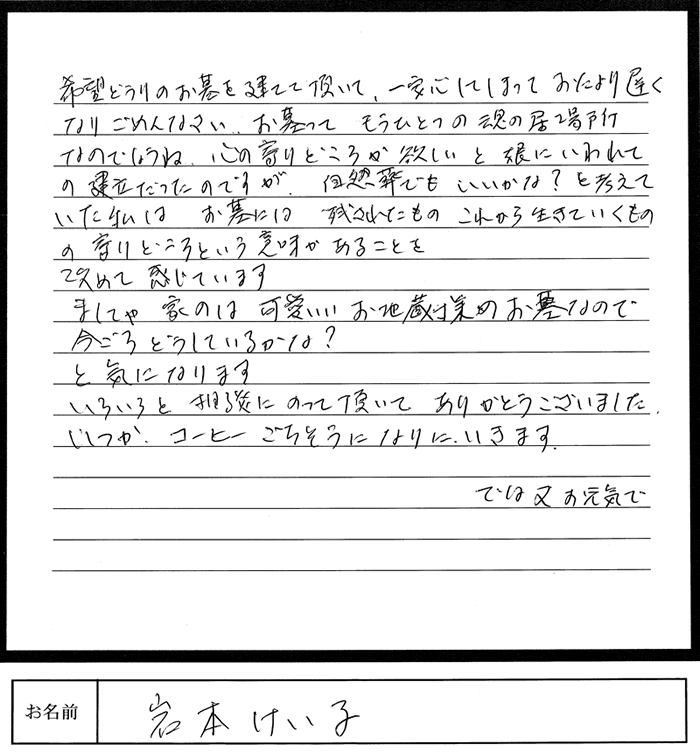 希望どうりのお墓を建てて頂いて、一安心してしまって おたより遅く
なりごめんなさい、お墓って もうひとつの 魂の居場所
なのでしょうね、心の寄りどころが 欲しい と 娘にいわれて
の 建立だったのですが、自然葬でも いいかな？と考えて
いた私は お墓には 残されたもの これから生きていくもの
の 寄りどころという意味が あることを
改めて 感じています
ましてや 家のは 可愛いい お地蔵様の お墓なので
今ごろ どうしているかな？
と 気になります
いろいろと 相談に のって頂いて ありがとうございました。
いつか、コーヒー ごちそうに なりに、いきます。
では又 お元気で
お名前 岩本けい子